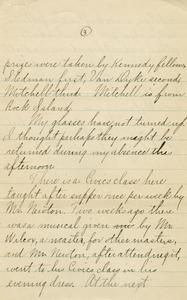 (3)
prizes were taken by Kennedy fellows
Stedman first, Van Dyke second,
Mitchell third. Mitchell is from
Rock Island.
My glasses have not turned up.
I thought perhaps they might be
returned during my absence this
afternoon.
There is a Civics class here
taught after supper once per week by
Mr. Newton. Two weeks ago there
was a musical given by Mr.
Wilcox, a master, for other masters,
and Mr. Newton, after attending it,
went to his Civics class in his
evening dress. At the next